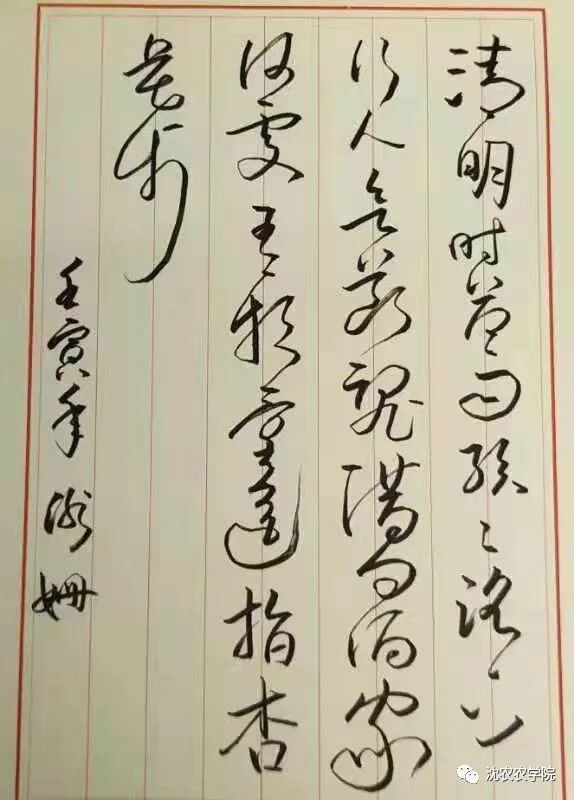 清明时节雨纷々路上
行人欲断魂借问酒家
何处有牧童遥指杏
花村
壬寅年 姗
沈农农学院